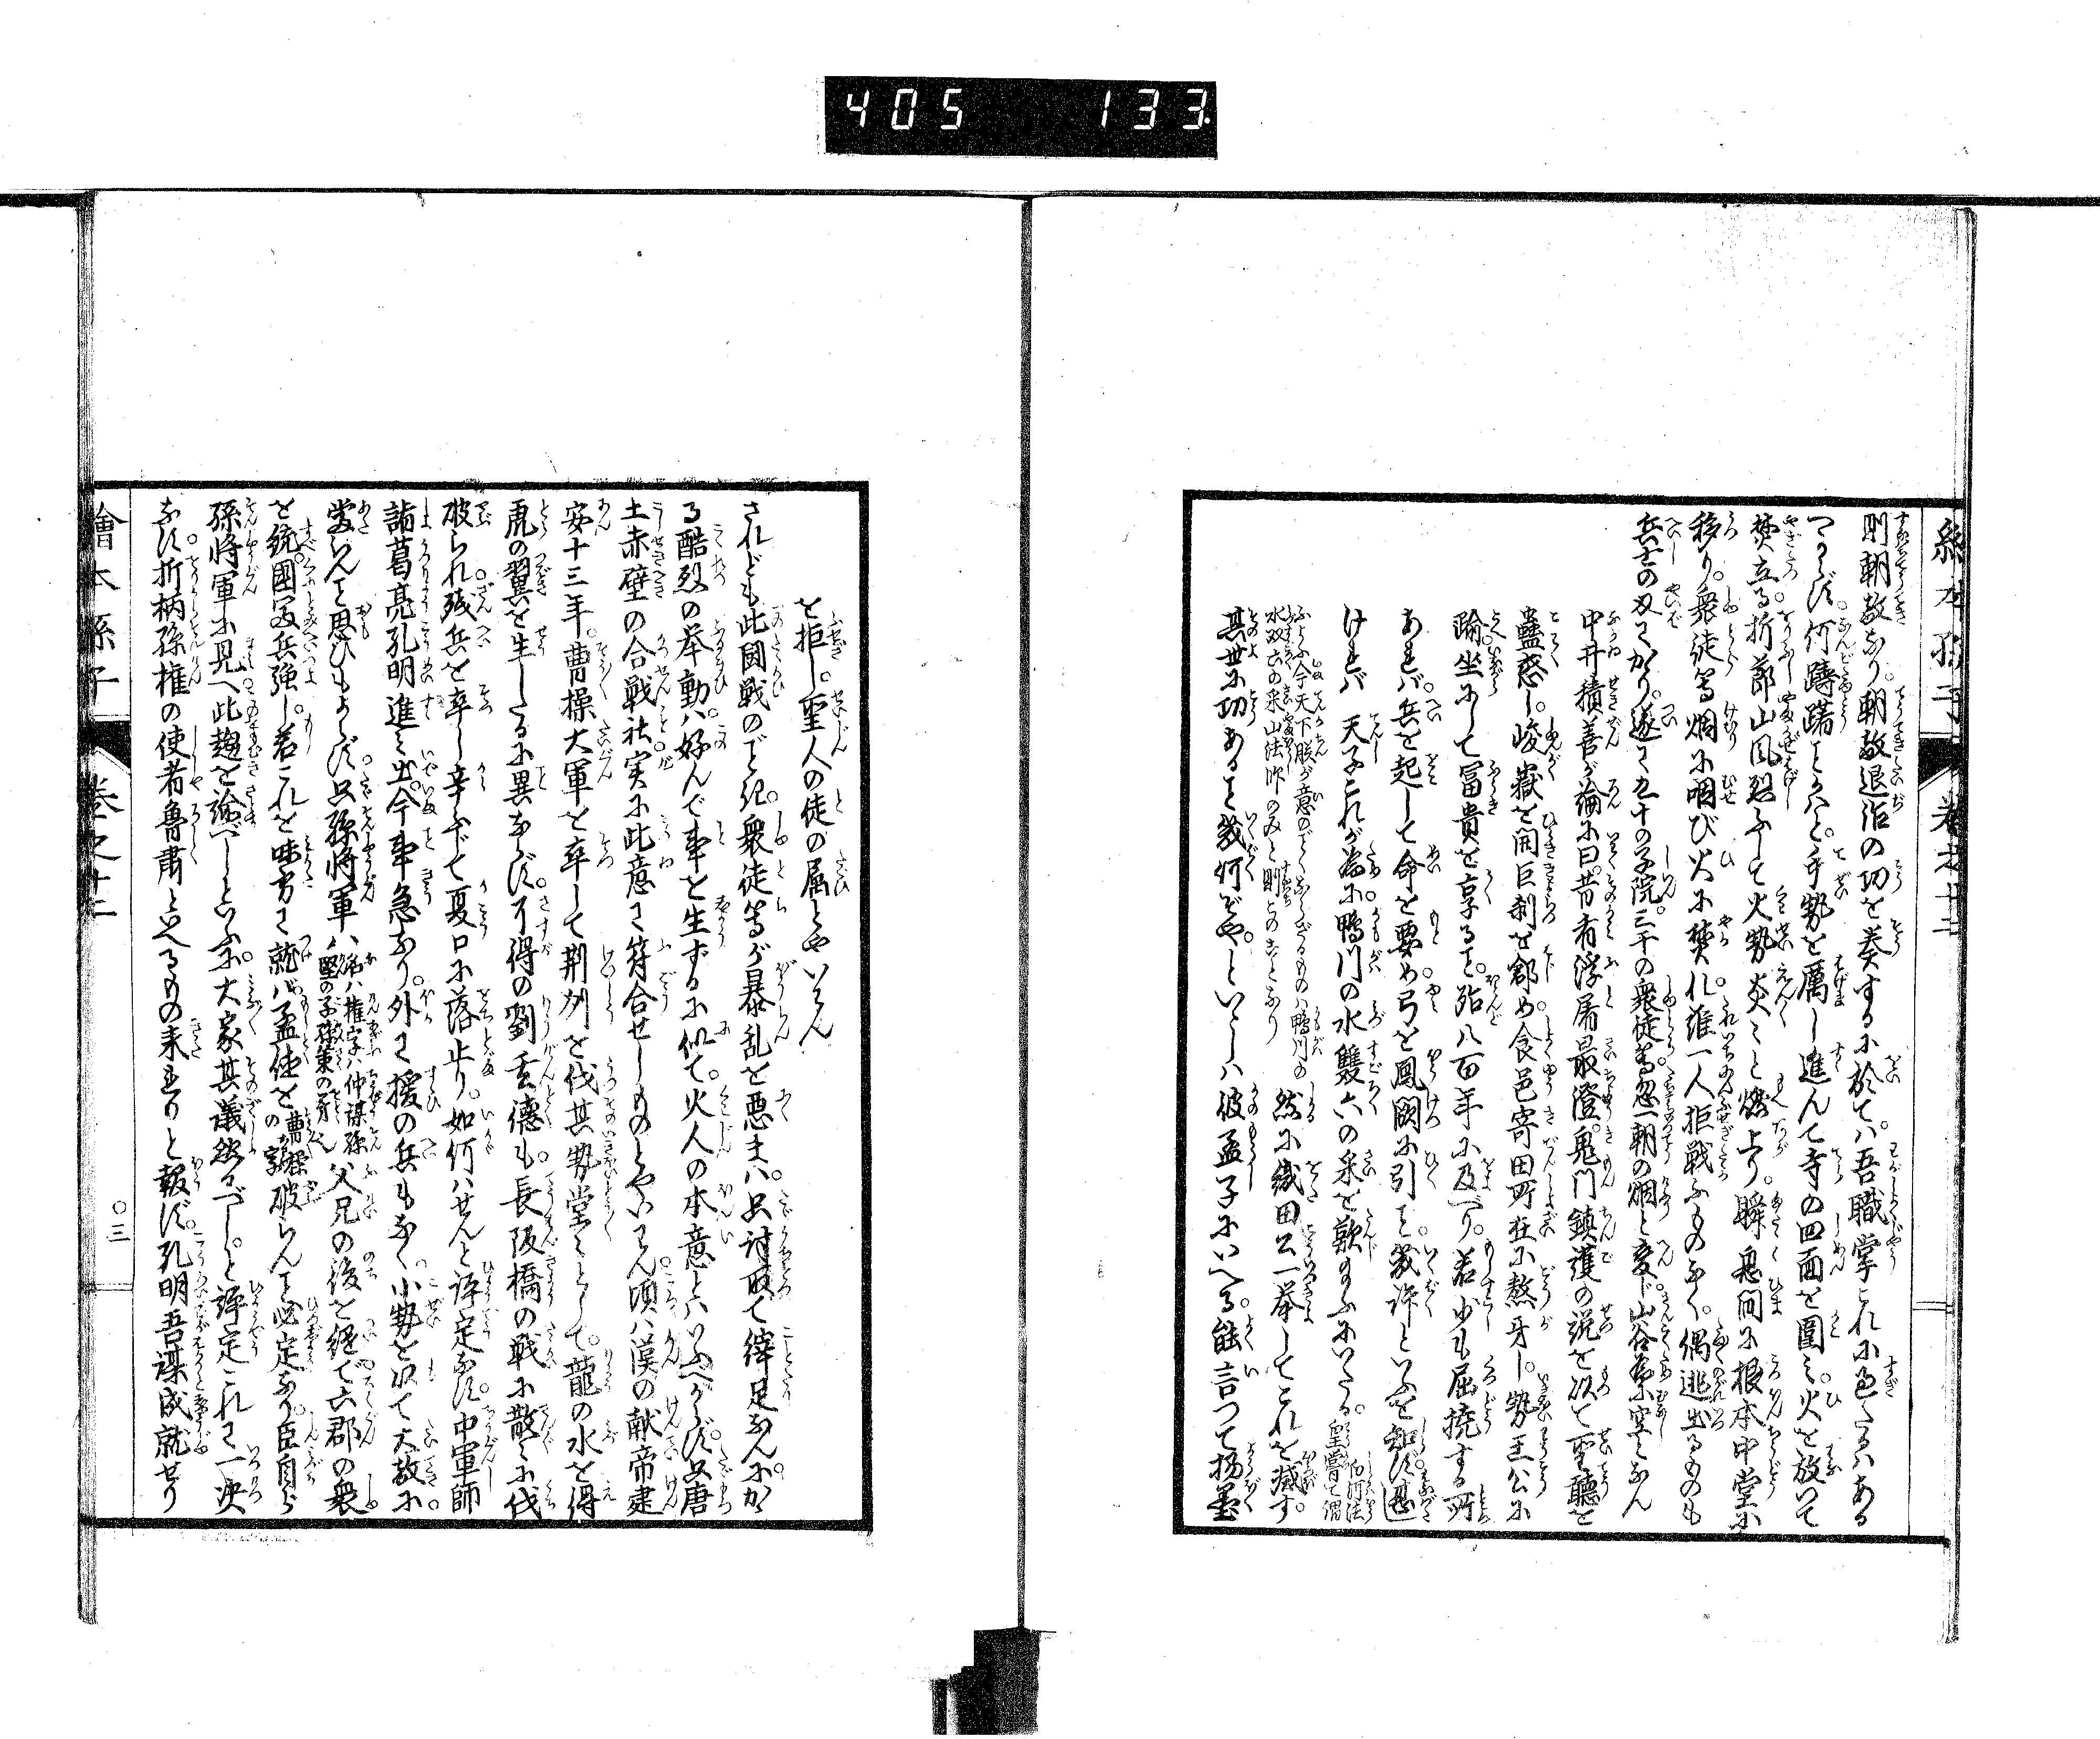 405 133
絵本孫子 巻之十二
則朝敵なり。朝敵退治の功を奏するに於て。ハ吾職掌これに過たるハある
つからず。何躊躇とらんと。手勢を厲し進んで寺の四面を囲ミ。火を放つて
焚立る。折節山風烈ふして火勢炎々と燃上り。瞬息間に根本中堂に
移り。衆徒等烟に咽び火に焚。れ誰一人拒戦ふものなく。偶逃出るものも
兵士の刃にかゝり。遂に九十の子院。三千の衆徒等忽一朝の烟と変ず山谷為に空となん
中井積善が論に曰。昔者浮屠最澄。鬼門鎮護の説を以て聖聴を
蠱惑し。峻嶽を開巨刹を剏め。食邑寄田所在に熬牙し。勢王公に
踰坐にして富貴を享ると。殆八百年に及べり。若少も屈撓する所
あれバ。兵を起して命を要め弓を鳳闕に引と。幾許といふを知ず甚
けれバ 天子これが為に鴨川の水雙六の采を歎給ふにいたる。
白河法皇嘗て謂
ふよふ今天下朕が意のごとくならざるものハ鴨川の
水双六の采山法師のみと則このことなり
然に織田公一挙してこれを滅す。
其世に功あると幾何ぞや。といひしハ彼孟子にいへる。能言つて揚墨
を拒し。聖人の徒の属とやいはん
されども此闘戦のごとき。衆徒等が暴乱を悪まハ只討取て繹足なんにかゝ
る酷烈の挙動ハ。好んで事を生ずるに似て。火人の本意とハいふべからず。只唐
土赤壁の合戦社。実に此意に符合せしものとやいはん頃ハ漢の献帝建
安十三年。曹操大軍を率して荊州を伐其勢堂々として。龍の水を得
虎の翼を生したるに異ならず。さすが得の劉玄徳も。長阪橋の戦に散々に伐
破られ。残兵を率し辛ふじて夏口に落止り。如何ハせんと評定なす。中軍師
諸葛亮孔明進ミ出。今事急なり。外に援の兵もなく。小勢を以て大敵に
当らんと思ひもよらず。只孫将軍ハ名ハ権字ハ仲謀孫堅の子孫策の弟父兄の後を継て六郡の衆
を統。国富兵強し。若これを味方に就ハ孟徳を曹操の字破らんと必定なり。臣自ら
孫将軍に見へ此趣を諭べしといふ。に大家其議然るべし。と評定これに一決
なす。折柄孫権の使者魯粛といへるもの来至りと報ず。孔明吾謀成就せり
繪本孫子 巻之十二 〇三